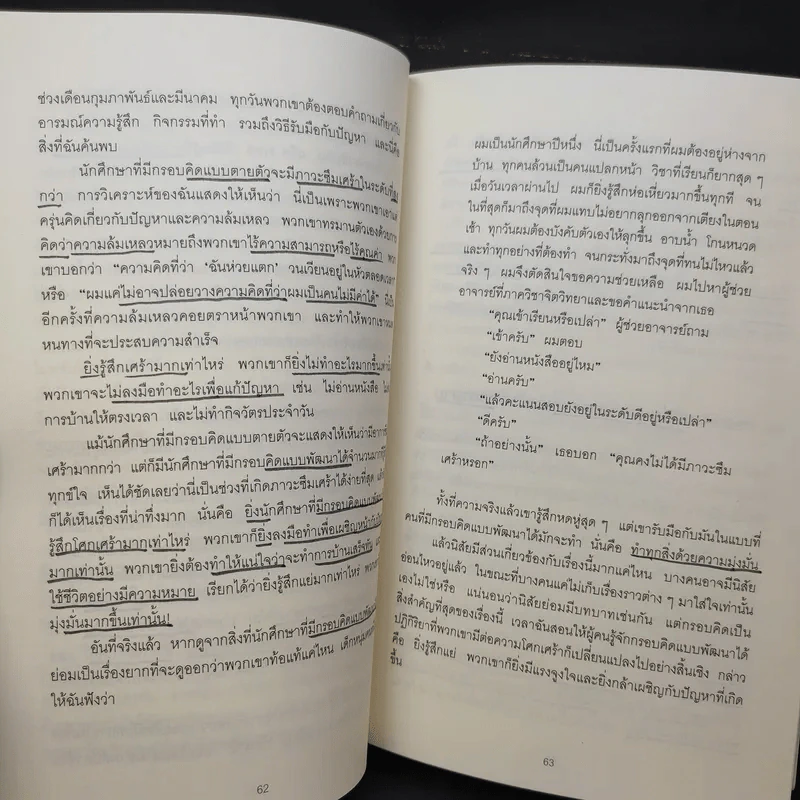 ช่วงเดือนกุมภาพันธ์และมีนาคม ทุกวันพวกเขาต้องตอบคำถามเกี่ยวกับ
อารมณ์ความรู้สึก กิจกรรมที่ทำ รวมถึงวิธีรับมือกับปัญหา และนี่คือ
สิ่งที่ฉันค้นพบ
นักศึกษาที่มีกรอบคิดแบบตายตัวจะมีภาวะซึมเศร้าในระดับที่สูง
กว่า การวิเคราะห์ของฉันแสดงให้เห็นว่า นี่เป็นเพราะพวกเขาเอาแต่
ครุ่นคิดเกี่ยวกับปัญหาและความล้มเหลว พวกเขาทรมานตัวเองด้วยการ
คิดว่าความล้มเหลวหมายถึงพวกเขาไร้ความสามารถหรือไร้คุณค่า
เขาบอกว่า “ความคิดที่ว่า ‘ฉันห่วยแตก’ วนเวียนอยู่ในหัวตลอดเวลา”
หรือ “ผมแค่ไม่อาจปล่อยวางความคิดที่ว่าผมเป็นคนไม่มีค่าได้”
อีกครั้งที่ความล้มเหลวคอยตราหน้าพวกเขา และทำให้พวกเขา
หนทางที่จะประสบความสำเร็จ
ยิ่งรู้สึกเศร้ามากเท่าไหร่ พวกเขาก็ยิ่งไม่ทำอะไรมากขึ้น
พวกเขาจะไม่ลงมือทำอะไรเพื่อแก้ปัญหา เช่น ไม่อ่านหนังสือ
การบ้านให้ตรงเวลา และไม่ทำกิจวัตรประจำวัน
แม้นักศึกษาที่มีกรอบคิดแบบตายตัวจะแสดงให้เห็นว่ามีอาการ
เศร้ามากกว่า แต่ก็มีนักศึกษาที่มีกรอบคิดแบบพัฒนาได้จำนวนมาก
ทุกข์ใจ เห็นได้ชัดเลยว่านี่เป็นช่วงที่เกิดภาวะซึมเศร้าได้ง่ายที่สุด
ก็ได้เห็นเรื่องที่น่าทึ่งมาก นั่นคือ ยิ่งนักศึกษาที่มีกรอบคิดแบบพัฒนา
รู้สึกโศกเศร้ามากเท่าไหร่ พวกเขาก็ยิ่งลงมือทำเพื่อเผชิญหน้ากับ
มากเท่านั้น พวกเขายิ่งต้องทำให้แน่ใจว่าจะทำการบ้านเสร็จทัน
ใช้ชีวิตอย่างมีความหมาย เรียกได้ว่ายิ่งรู้สึกแย่มากเท่าไหร่
มุ่งมั่นมากขึ้นเท่านั้น!
อันที่จริงแล้ว หากดูจากสิ่งที่นักศึกษาที่มีกรอบคิดแบบพัฒนา
ย่อมเป็นเรื่องยากที่จะดูออกว่าพวกเขาท้อแท้แค่ไหน เด็กหนุ่ม
ให้ฉันฟังว่า
62
ผมเป็นนักศึกษาปีหนึ่ง นี่เป็นครั้งแรกที่ผมต้องอยู่ห่างจาก
บ้าน ทุกคนล้วนเป็นคนแปลกหน้า วิชาที่เรียนก็ยากสุด ๆ
เมื่อวันเวลาผ่านไป ผมก็ยิ่งรู้สึกห่อเหี่ยวมากขึ้นทุกที จน
ในที่สุดก็มาถึงจุดที่ผมแทบไม่อยากลุกออกจากเตียงในตอน
เช้า ทุกวันผมต้องบังคับตัวเองให้ลุกขึ้น อาบน้ำ โกนหนวด
และทำทุกอย่างที่ต้องทำ จนกระทั่งมาถึงจุดที่ทนไม่ไหวแล้ว
จริง ๆ ผมจึงตัดสินใจขอความช่วยเหลือ ผมไปหาผู้ช่วย
อาจารย์ที่ภาควิชาจิตวิทยาและขอคำแนะนำจากเธอ
“คุณเข้าเรียนหรือเปล่า” ผู้ช่วยอาจารย์ถาม
“เข้าครับ” ผมตอบ
“ยังอ่านหนังสืออยู่ไหม”
“อ่านครับ”
“แล้วคะแนนสอบยังอยู่ในระดับดีอยู่หรือเปล่า”
“ดีครับ”
“ถ้าอย่างนั้น” เธอบอก “คุณคงไม่ได้มีภาวะซึม
เศร้าหรอก”
ทั้งที่ความจริงแล้วเขารู้สึกหดหู่สุด ๆ แต่เขารับมือกับมันในแบบที่
คนที่มีกรอบคิดแบบพัฒนาได้มักจะทำ นั่นคือ ทำทุกสิ่งด้วยความมุ่งมั่น
แล้วนิสัยมีส่วนเกี่ยวข้องกับเรื่องนี้มากแค่ไหน บางคนอาจมีนิสัย
อ่อนไหวอยู่แล้ว ในขณะที่บางคนแค่ไม่เก็บเรื่องราวต่าง ๆ มาใส่ใจเท่านั้น
เองไม่ใช่หรือ แน่นอนว่านิสัยย่อมมีบทบาทเช่นกัน แต่กรอบคิดเป็น
สิ่งสำคัญที่สุดของเรื่องนี้ เวลาฉันสอนให้ผู้คนรู้จักกรอบคิดแบบพัฒนาได้
ปฏิกิริยาที่พวกเขามีต่อความโศกเศร้าก็เปลี่ยนแปลงไปอย่างสิ้นเชิง กล่าว
คือ ยิ่งรู้สึกแย่ พวกเขาก็ยิ่งมีแรงจูงใจและยิ่งกล้าเผชิญกับปัญหาที่เกิด
ขึ้น
63